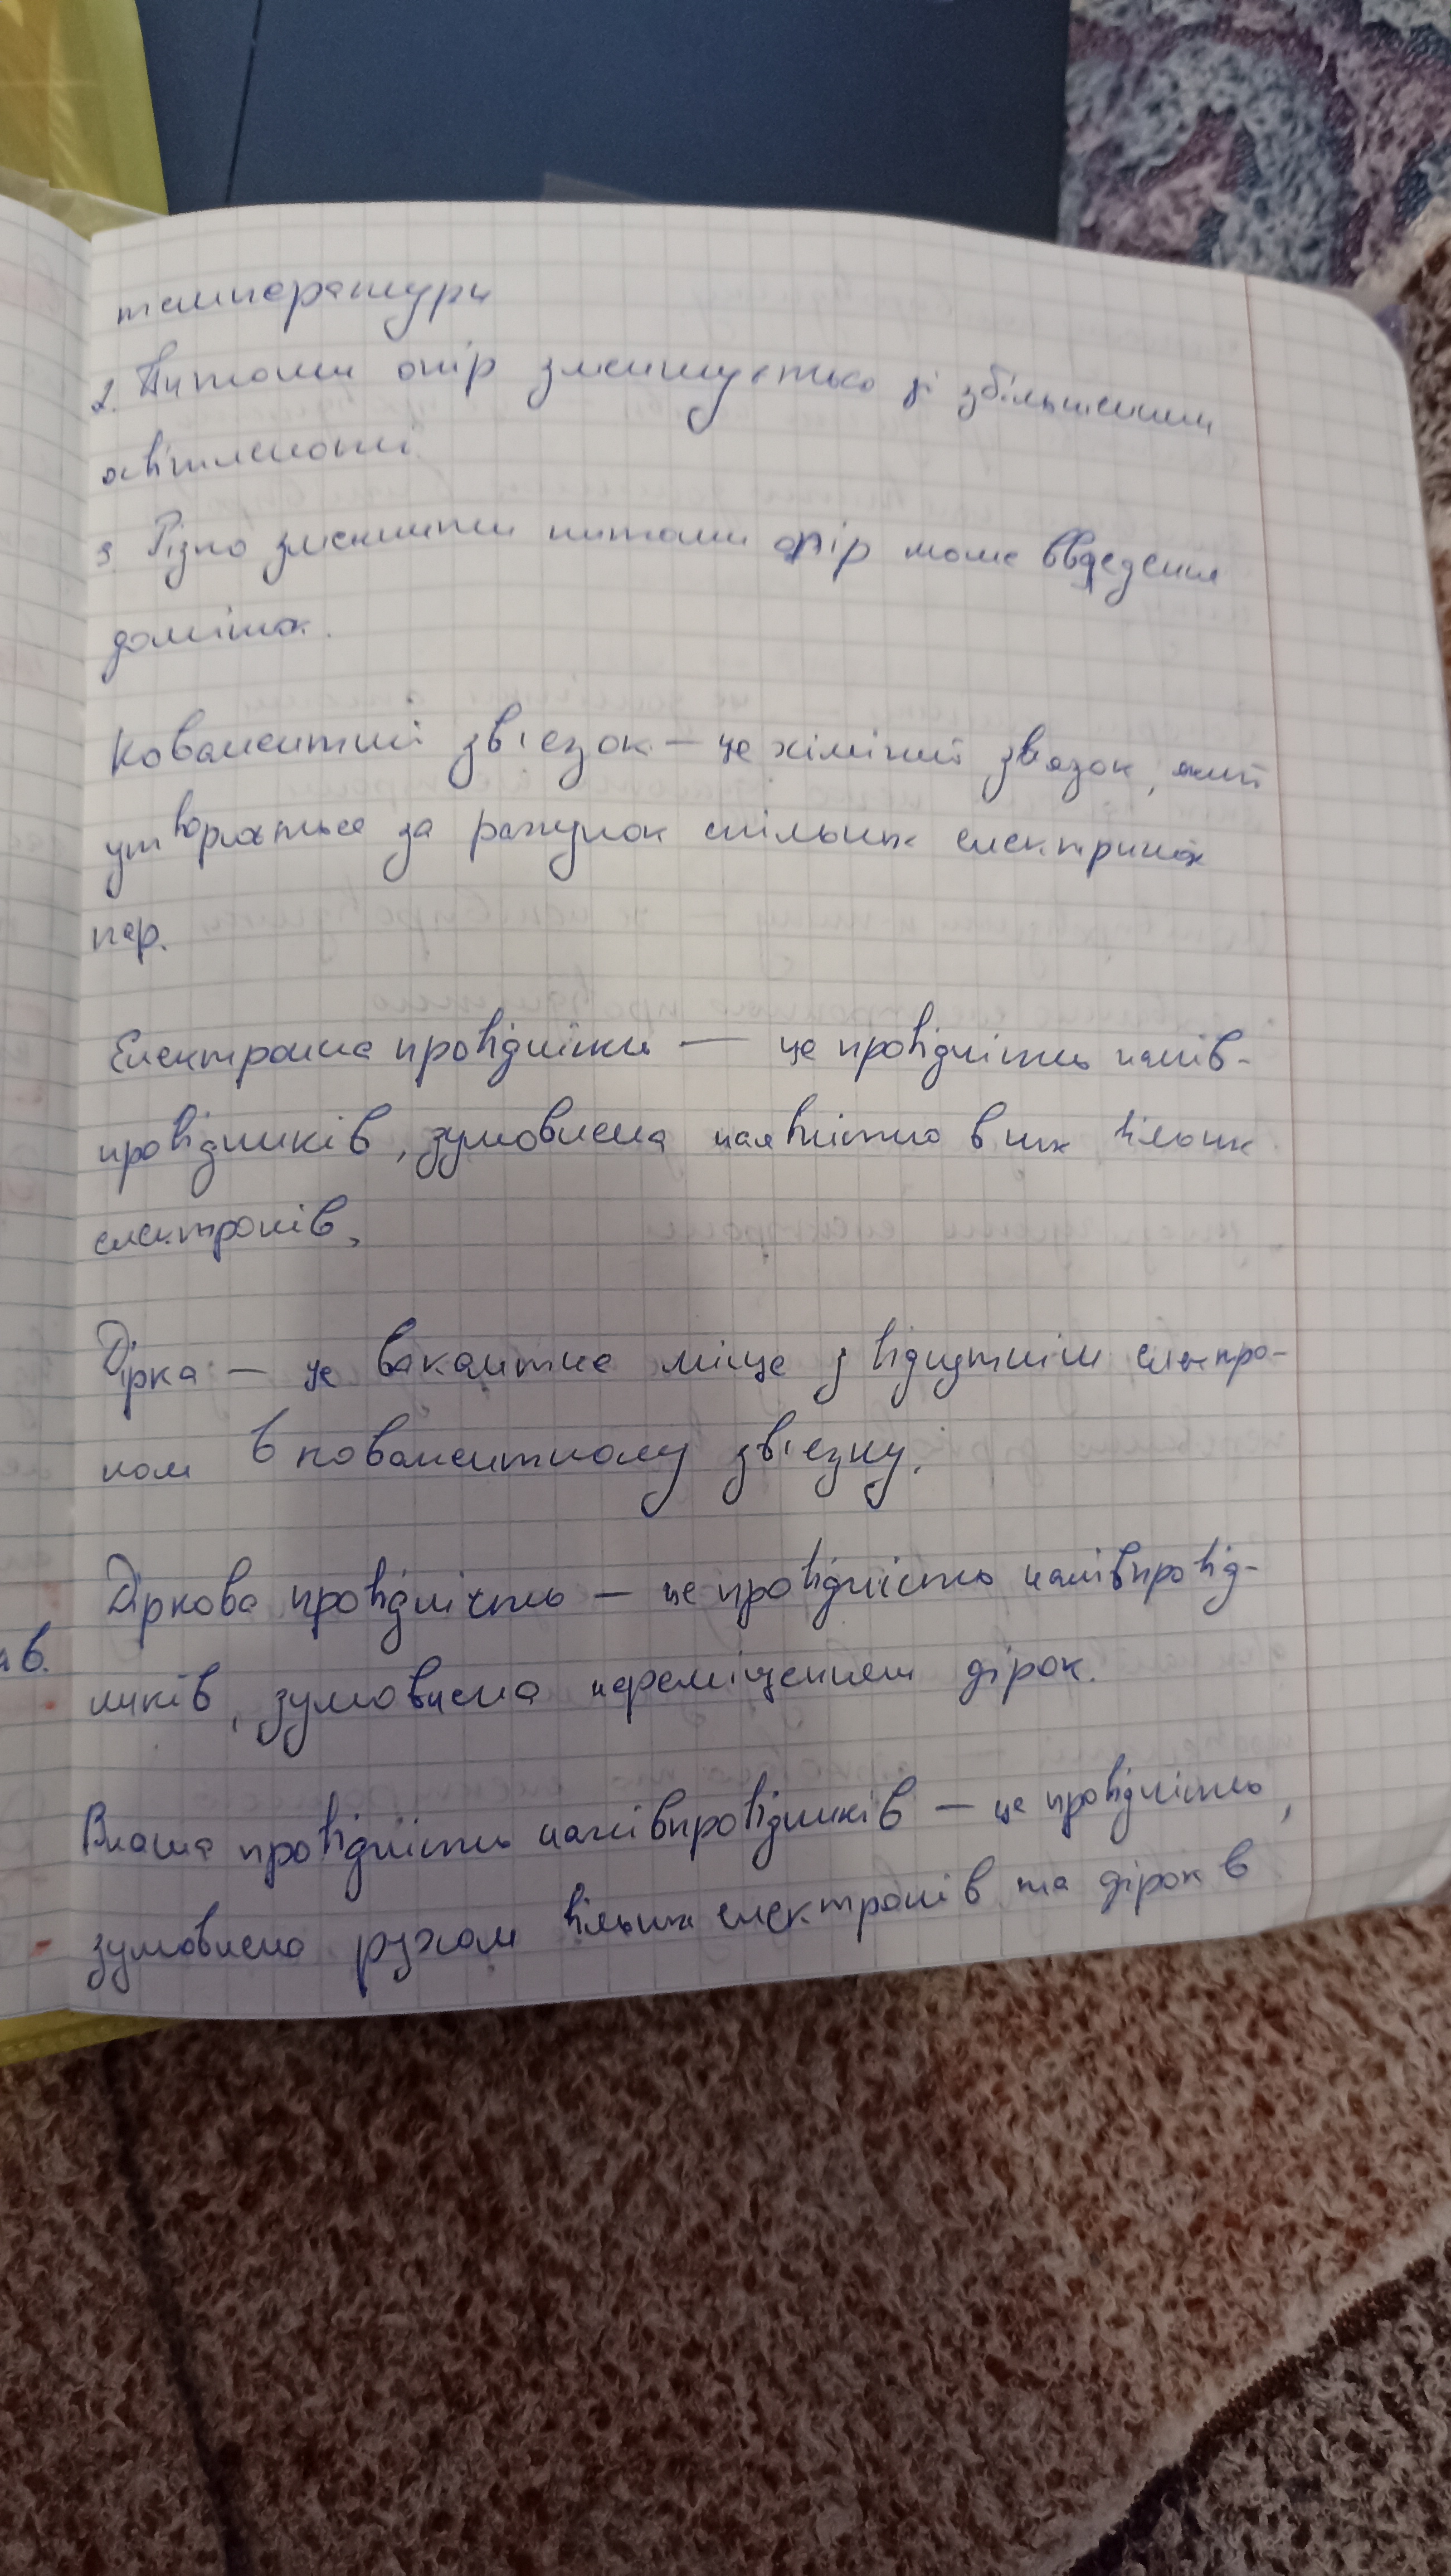 температури
2. Питомий опір зменшується зі збільшенням
освітленості
3 Різко зменшити питомий опір може введення
домішок.
Ковалентний зв'єзок - це хімічний зв'язок, який
утворюється за рахунок спільних електриних
пар.
Електронна провідність — це провідність напів-
провідників, зумовлена наявністю в них вільних
електронів,
Дірка — це вакантне місце з відсутнім електро-
ном в ковалентному зв'єзку.
Діркова провідність — це провідність напівпровід-
ників, зумовлена переміщенням дірок.
ав.
Власна провідність напівпровідників — це провідність,
зумовлена рухом вільних електронів та дірок в